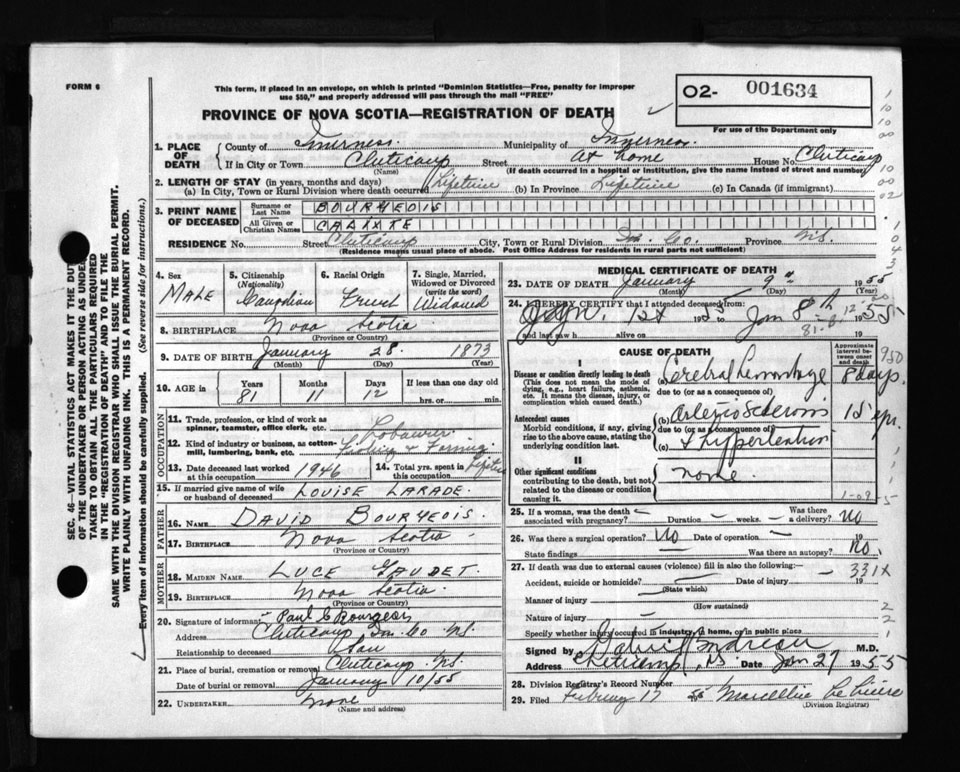 FORM 6
This form, if placed in an envelope, on which is printed "Dominion Statistics—Free, penalty for improper
use $50," and properly addressed will pass through the mail "FREE"
02- 001634
PROVINCE OF NOVA SCOTIA—REGISTRATION OF DEATH
For use of the Department only
1. PLACE OF DEATH
County of Inverness Municipality of Inverness
If in City or Town Cheticamp Street At home House No. Cheticamp
(Name) (If death occurred in a hospital or institution, give the name instead of street and number)
2. LENGTH OF STAY (in years, months and days)
(a) In City, Town or Rural Division where death occurred Lifetime (b) In Province Lifetime (c) In Canada (if immigrant)
3. PRINT NAME OF DECEASED
Surname or Last Name BOURGEOIS
All Given or Christian Names CALIXTE
RESIDENCE No. Street Cheticamp City, Town or Rural Division Inv. Co. Province N.S.
(Residence means usual place of abode. Post Office Address for residents in rural parts not sufficient)
4. Sex Male
5. Citizenship (Nationality) Canadian
6. Racial Origin French
7. Single, Married, Widowed or Divorced (write the word) Widowed
8. BIRTHPLACE Nova Scotia
(Province or Country)
9. DATE OF BIRTH January 28 1873
(Month) (Day)
10. AGE Years 81 Months 11 Days 12 If less than one day old
hrs. or min.
OCCUPATION
11. Trade, profession, or kind of work as
spinner, teamster, office clerk, etc. Labourer
12. Kind of industry or business, as cotton-
mill, lumbering, bank, etc. Fishing & Farming
13. Date deceased last worked at this occupation 1946 14. Total yrs. spent in this occupation
15. If married give name of wife
or husband of deceased Louise Larade.
FATHER
16. NAME David Bourgeois.
17. BIRTHPLACE Nova Scotia
(Province or Country)
MOTHER
18. MAIDEN NAME Luce Gaudet.
19. BIRTHPLACE Nova Scotia
(Province or Country)
20. Signature of informant Paul Bourgeois
Address Cheticamp Inv. Co. N.S.
Relationship to deceased Son
21. Place of burial, cremation or removal Cheticamp N.S.
Date of burial or removal January 10/55
22. UNDERTAKER None
(Name and address)
MEDICAL CERTIFICATE OF DEATH
23. DATE OF DEATH January 9th 1955
(Month) (Day)
24. I HEREBY CERTIFY that I attended deceased from
Jan. 1st 1955 to Jan 8th 1955
and last saw h alive on 19
CAUSE OF DEATH
Approximate interval between onset and death
I
Disease or condition directly leading to death
(This does not mean the mode of
dying, e.g., heart failure, asthenia,
etc. It means the disease, injury, or
complication which caused death.)
(a) Cerebral Hemorrhage 8 days.
due to (or as a consequence of)
Antecedent causes
Morbid conditions, if any, giving
rise to the above cause, stating the
underlying condition last.
(b) Arterio Sclerosis 15 yr.
due to (or as a consequence of)
(c) & hypertention
II
Other significant conditions
contributing to the death, but not
related to the disease or condition
causing it.
none.
25. If a woman, was the death
associated with pregnancy? — Duration — weeks. — Was there a delivery? No
26. Was there surgical operation? No Date of operation —
State findings — Was there an autopsy? No.
27. If death was due to external causes (violence) fill in also the following:— 331X
Accident, suicide or homicide? — Date of injury — 19
(State which)
Manner of injury
(How sustained)
Nature of injury —
Specify whether injury occurred in industry, home, or in public place
Signed by M.D.
Address Cheticamp, N.S. Date Jan 27 1955
28. Division Registrar's Record Number
29. Filed February 17 55
(Division Registrar)
SEC. 46—VITAL STATISTICS ACT MAKES IT THE DUTY
OF THE UNDERTAKER OR PERSON ACTING AS UNDER-
TAKER TO OBTAIN ALL THE PARTICULARS REQUIRED
IN THE "REGISTRATION OF DEATH" AND TO FILE THE
SAME WITH THE DIVISION REGISTRAR WHO SHALL ISSUE THE BURIAL PERMIT.
WRITE PLAINLY WITH UNFADING INK. THIS IS A PERMANENT RECORD.
Every item of information should be carefully supplied. (See reverse side for instructions.)